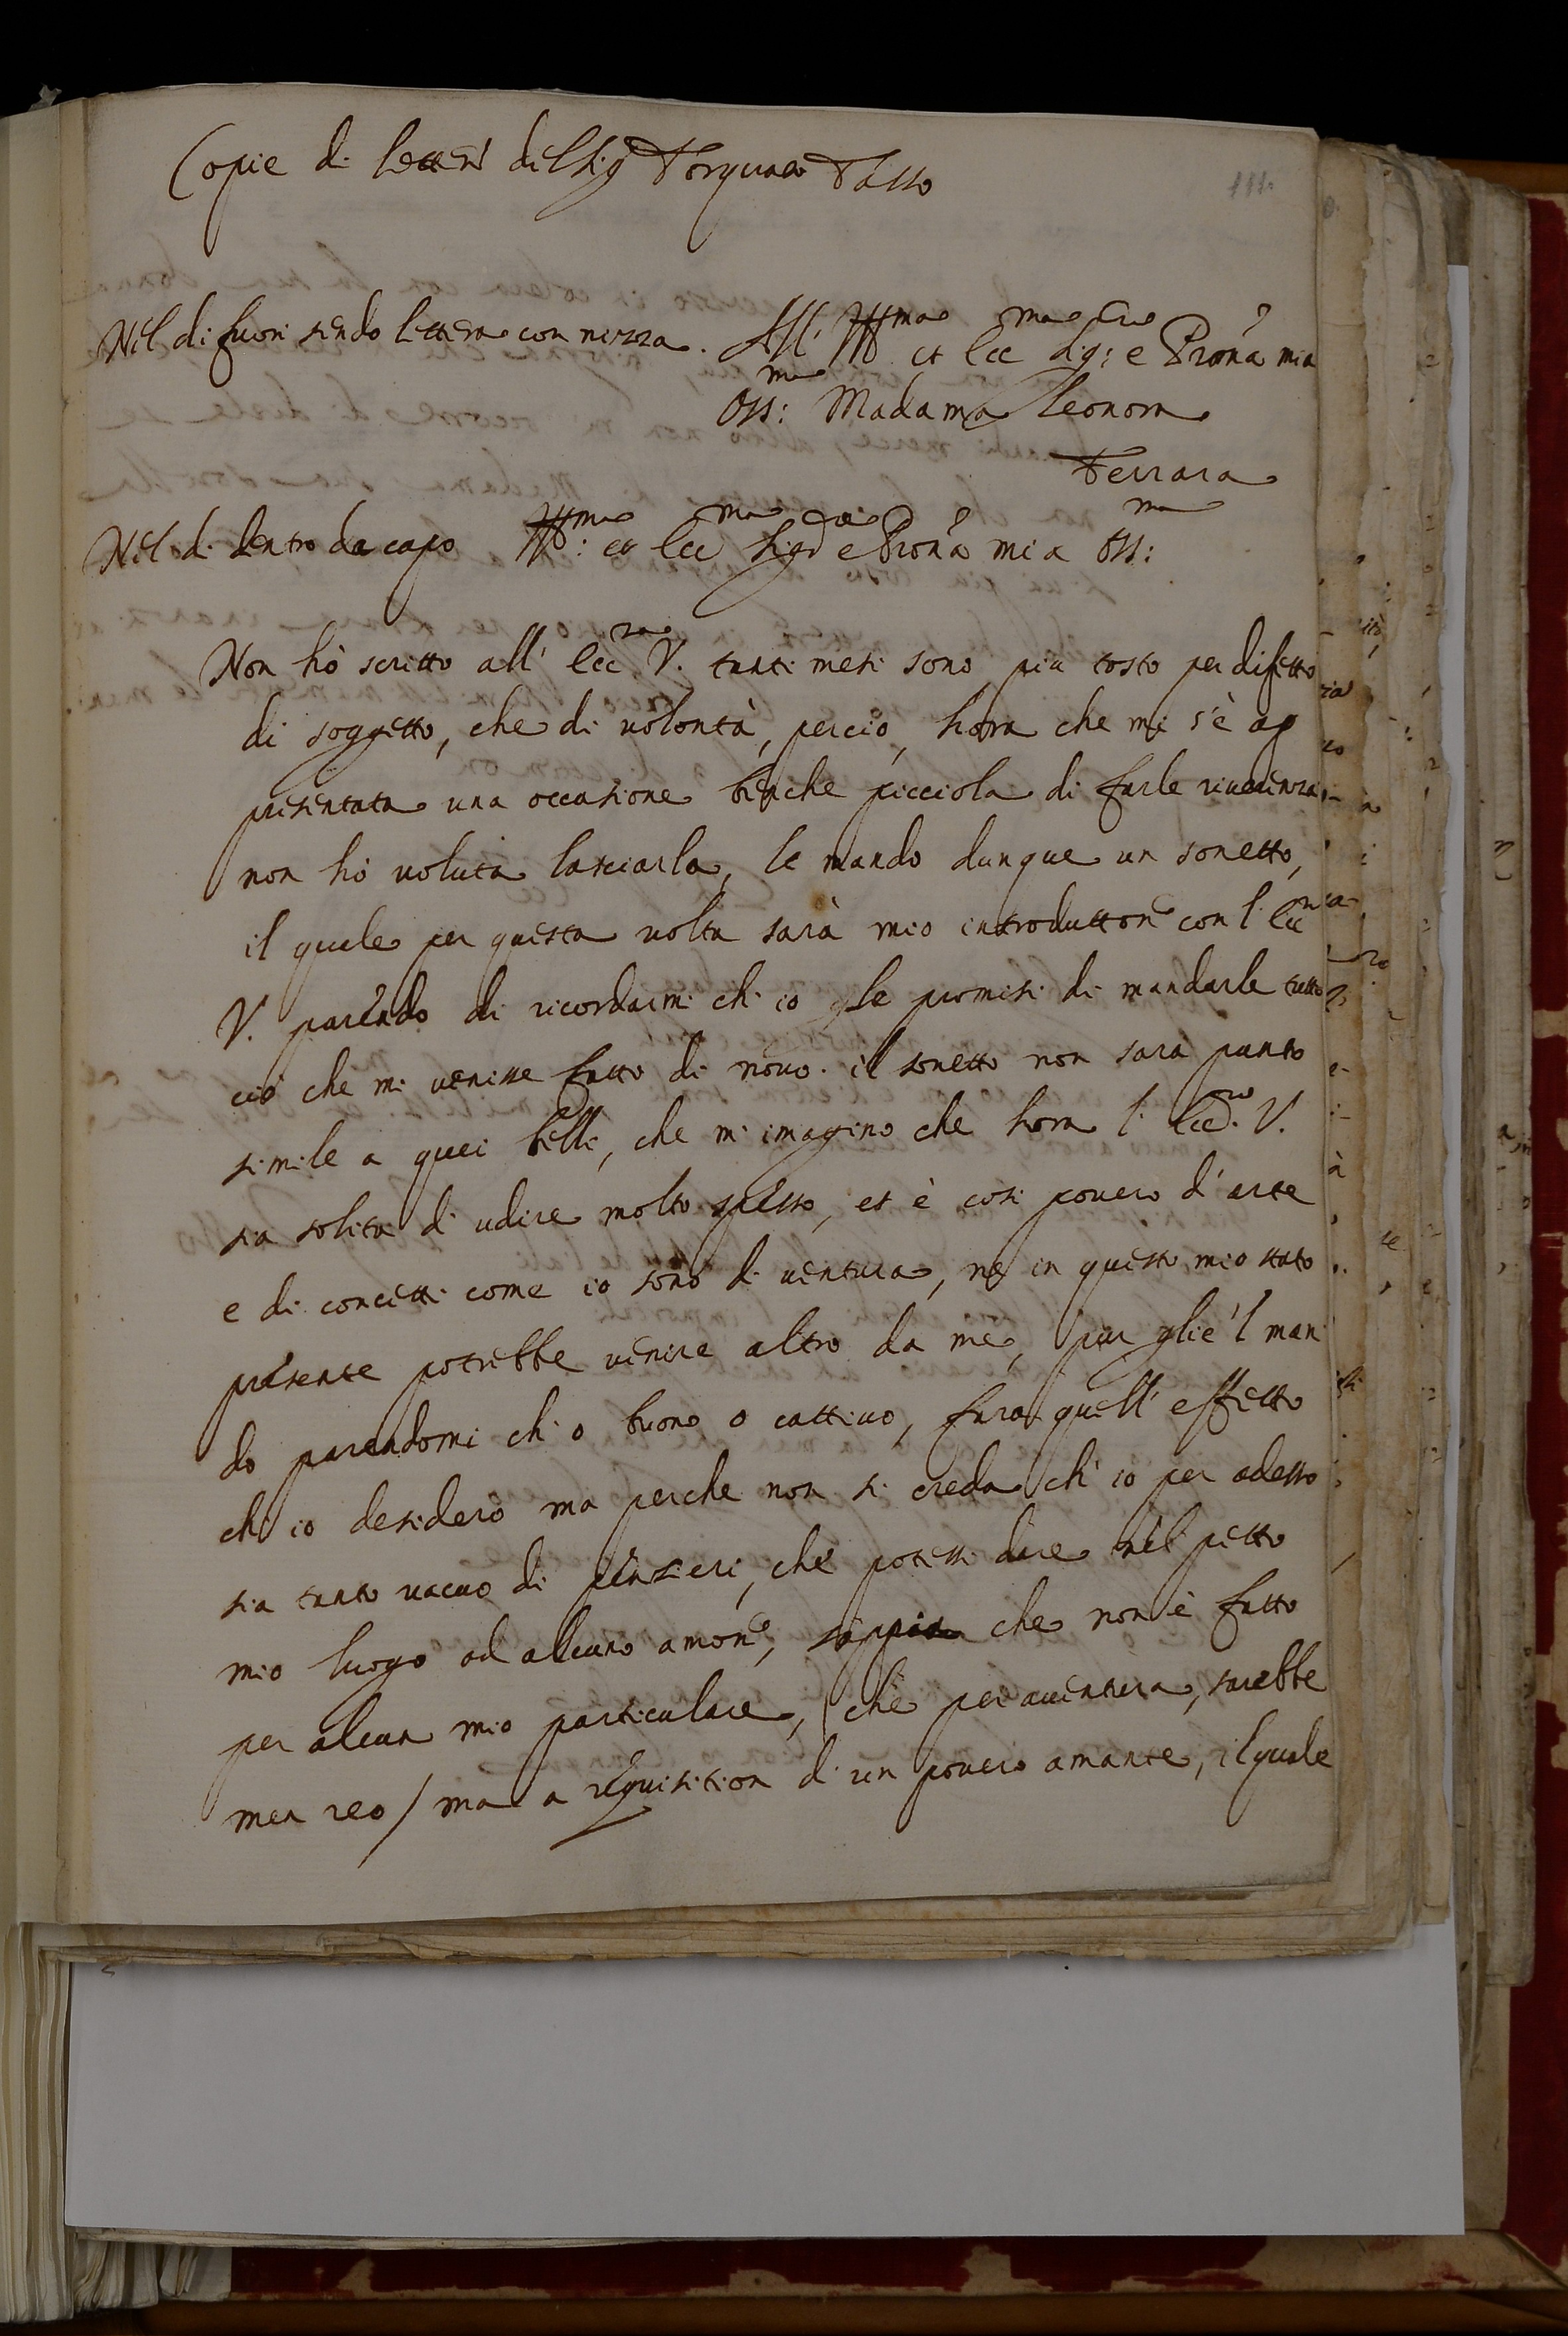 Copie di lettere del Sig.r Torquato Tasso
111.
Nel di fuori sendo lettera con nizza. All' Ill.ma et Ecc.ma Sig.ra e Prona mia
Oss.ma Madama Leonora
Ferrara
Nel di dentro da capo Ill.ma et Ecc.ma Sig.ra e Prona mia Oss.ma
Non hò scritto all' Ecc.za V. tanti mesi sono più tosto per difetto
di soggetto, che di volontà, perciò, hora che mi s'è ap
presentata una occasione benche picciola di farle riverenza
non hò voluta lasciarla, le mando dunque un sonetto,
il quale per questa volta sarà mio introduttore con l' Ecc.za
V. parendo di ricordarmi ch' io gle promisi di mandarle tutto
ciò che mi venisse fatto di novo. il sonetto non sarà punto
simile a quei belli, che m' imagino che hora l' Ecc.za V.
sia solita di udire molto spesso, et è così povero d' arte
e di concetti come io sono di ventura, ne in questo mio stato
presente potrebbe venire altro da me, pur glie 'l man
do parendomi ch' o buono o cattivo, farà quell' effetto
ch' io desidero ma perche non si creda ch' io per adesso
sia tanto vacuo di pensieri, che potessi dare nel petto
mio luogo ad alcuno amore, sappia che non è fatto
per alcun mio particulare, (che per aventura, sarebbe
men reo / ma a requisition di un povero amante, il quale